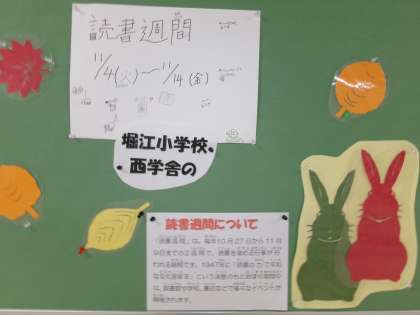 読書週間
11/4(火)〜11/14(金)
堀江小学校、
西学舎の
読書週間について
「読書週間」は、毎年10月27日から11月
9日までの2週間で、読書を進める行事が行
われる期間です。1947年に「読書の力で平和
な文化国家を」という決意のもと
は、図書館や学校、書店などで様々なイベントが
開催されます。